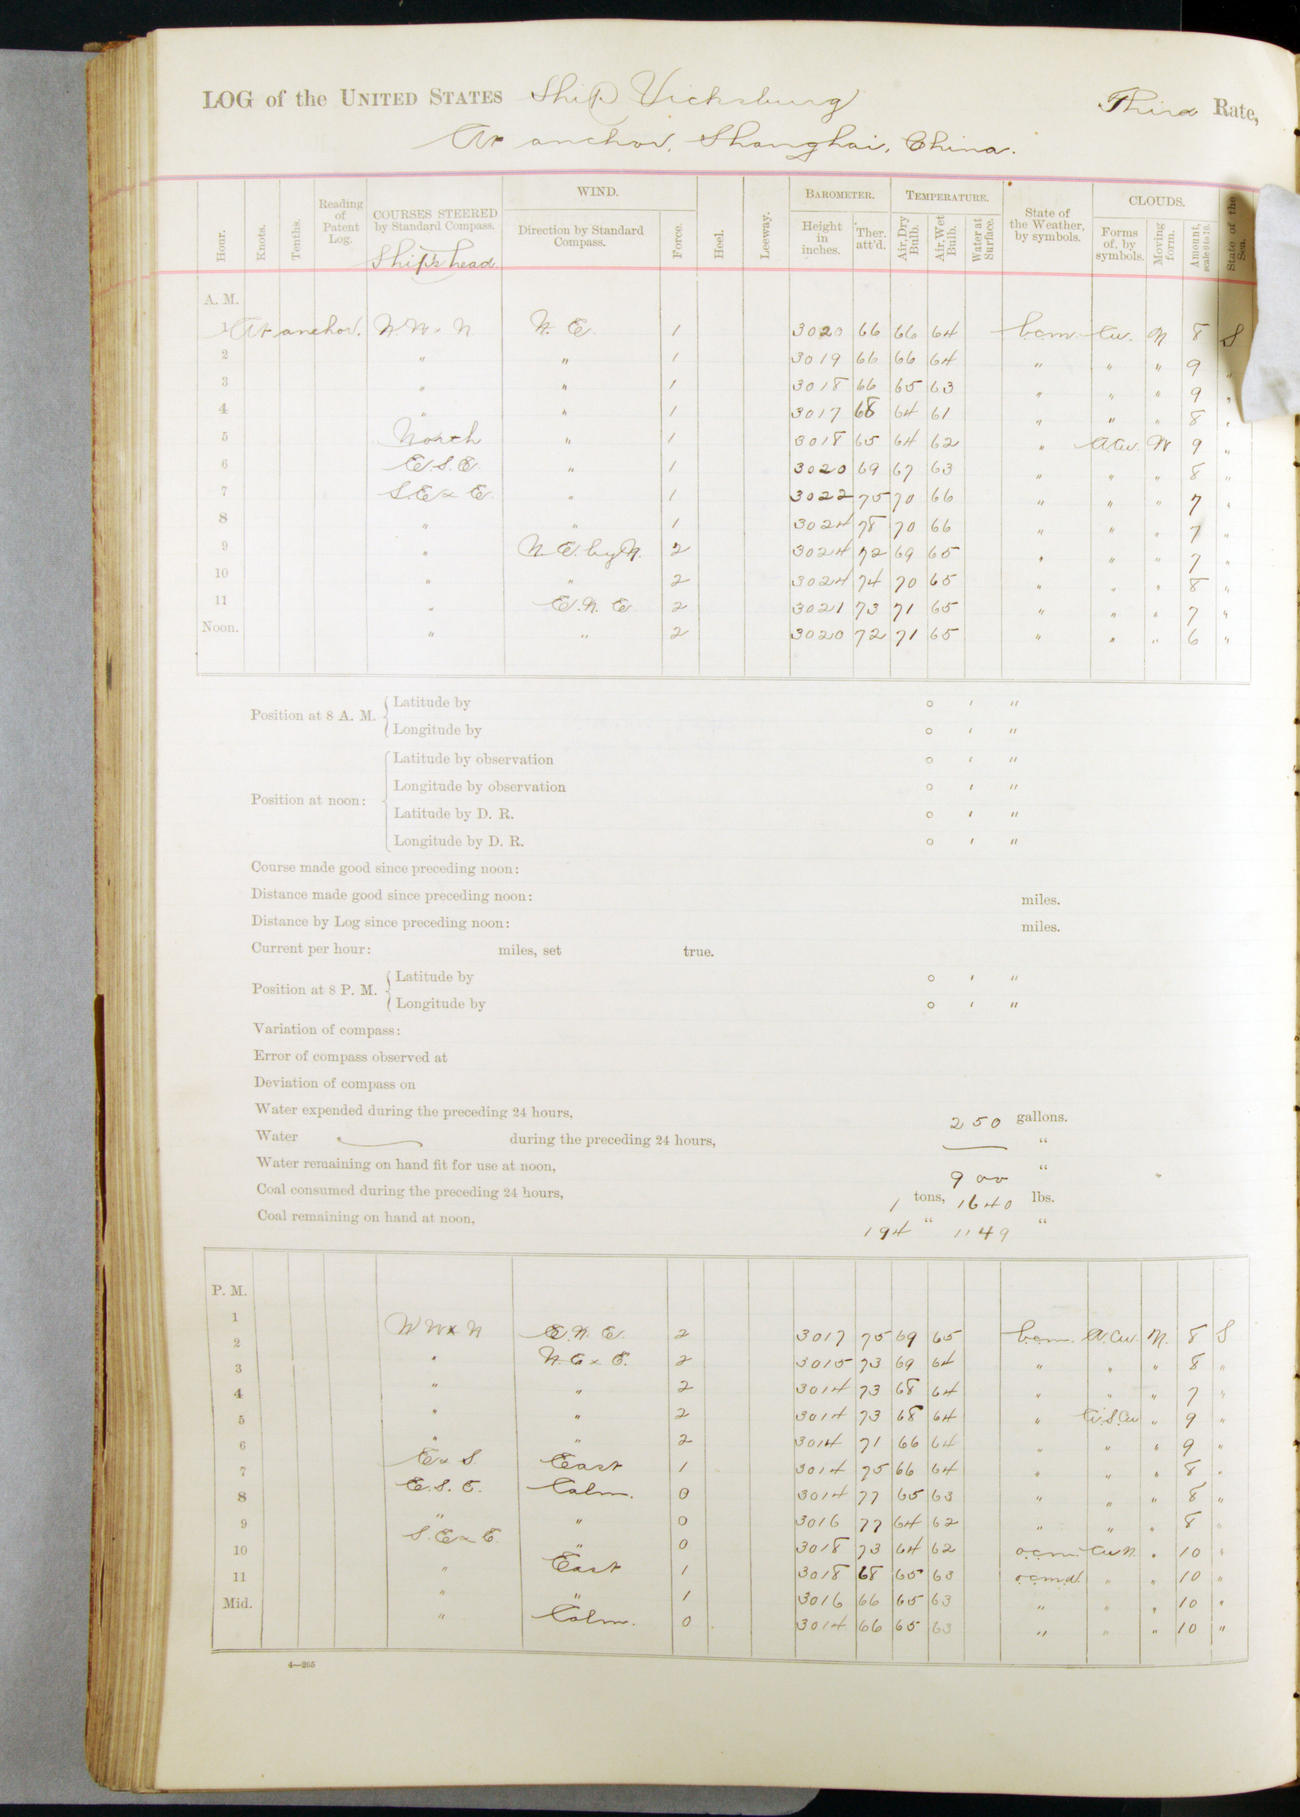 LOG of the UNITED STATES Ship Vicksburg Third Rate,
At anchor, Shanghai, China.
Hour. Knots. Tenths. Reading of Patent Log. COURSES STEERED by Standard Compass. WIND. Direction by Standard Compass. Force. Heel. Leeway. BAROMETER. Height in inches. Ther. att'd. TEMPERATURE. Air, Dry Bulb. Air, Wet Bulb. Water at Surface. State of the Weather, by symbols. CLOUDS. Forms of, by symbols. Moving form. Amount, scale 0 to 10. State of the Sea.
Ship's head
A. M.
1 At anchor. NW x N N. E. 1 3020 66 66 64 b.c.m. Cu. N 8 S
2 " " 1 3019 66 66 64 " " " 9 "
3 " " 1 3018 66 65 63 " " " 9 "
4 " " 1 3017 68 64 61 " " " 8 "
5 North " 1 3018 65 64 62 " A.Cu. N 9 "
6 E.S.E. " 1 3020 69 67 63 " " " 8 "
7 S.E x E. " 1 3022 75 70 66 " " " 7 "
8 " " 1 3024 78 70 66 " " " 7 "
9 " N.E. by N. 2 3024 72 69 65 " " " 7 "
10 " " 2 3024 74 70 65 " " " 8 "
11 " E.N.E 2 3021 73 71 65 " " " 7 "
Noon. " " 2 3020 72 71 65 " " " 6 "
Position at 8 A. M. Latitude by ° ' "
Longitude by ° ' "
Position at noon: Latitude by observation ° ' "
Longitude by observation ° ' "
Latitude by D. R. ° ' "
Longitude by D. R. ° ' "
Course made good since preceding noon:
Distance made good since preceding noon: miles.
Distance by Log since preceding noon: miles.
Current per hour: miles, set true.
Position at 8 P. M. Latitude by ° ' "
Longitude by ° ' "
Variation of compass:
Error of compass observed at
Deviation of compass on
Water expended during the preceding 24 hours, 250 gallons.
Water during the preceding 24 hours, — "
Water remaining on hand fit for use at noon, 900 "
Coal consumed during the preceding 24 hours, 1 tons, 1640 lbs.
Coal remaining on hand at noon, 194 " 1149 "
P. M.
1 NW x N E.N.E. 2 3017 75 69 65 b.c.m. A.Cu. N. 8 S
2 " N.E x E. 2 3015 73 69 64 " " " 8 "
3 " " 2 3014 73 68 64 " " " 7 "
4 " " 2 3014 73 68 64 " Ci.S.Cu " 9 "
5 " " 2 3014 71 66 64 " " " 9 "
6 E x S. East 1 3014 75 66 64 " " " 8 "
7 E.S.E. Calm. 0 3014 77 65 63 " " " 8 "
8 " " 0 3016 77 64 62 " " " 8 "
9 S.E x E. " 0 3018 73 64 62 o.c.m. Cu.N. " 10 "
10 " East 1 3018 68 65 63 o.c.m.d. " " 10 "
11 " " 1 3016 66 65 63 " " " 10 "
Mid. " Calm. 0 3014 66 65 63 " " " 10 "
4—265